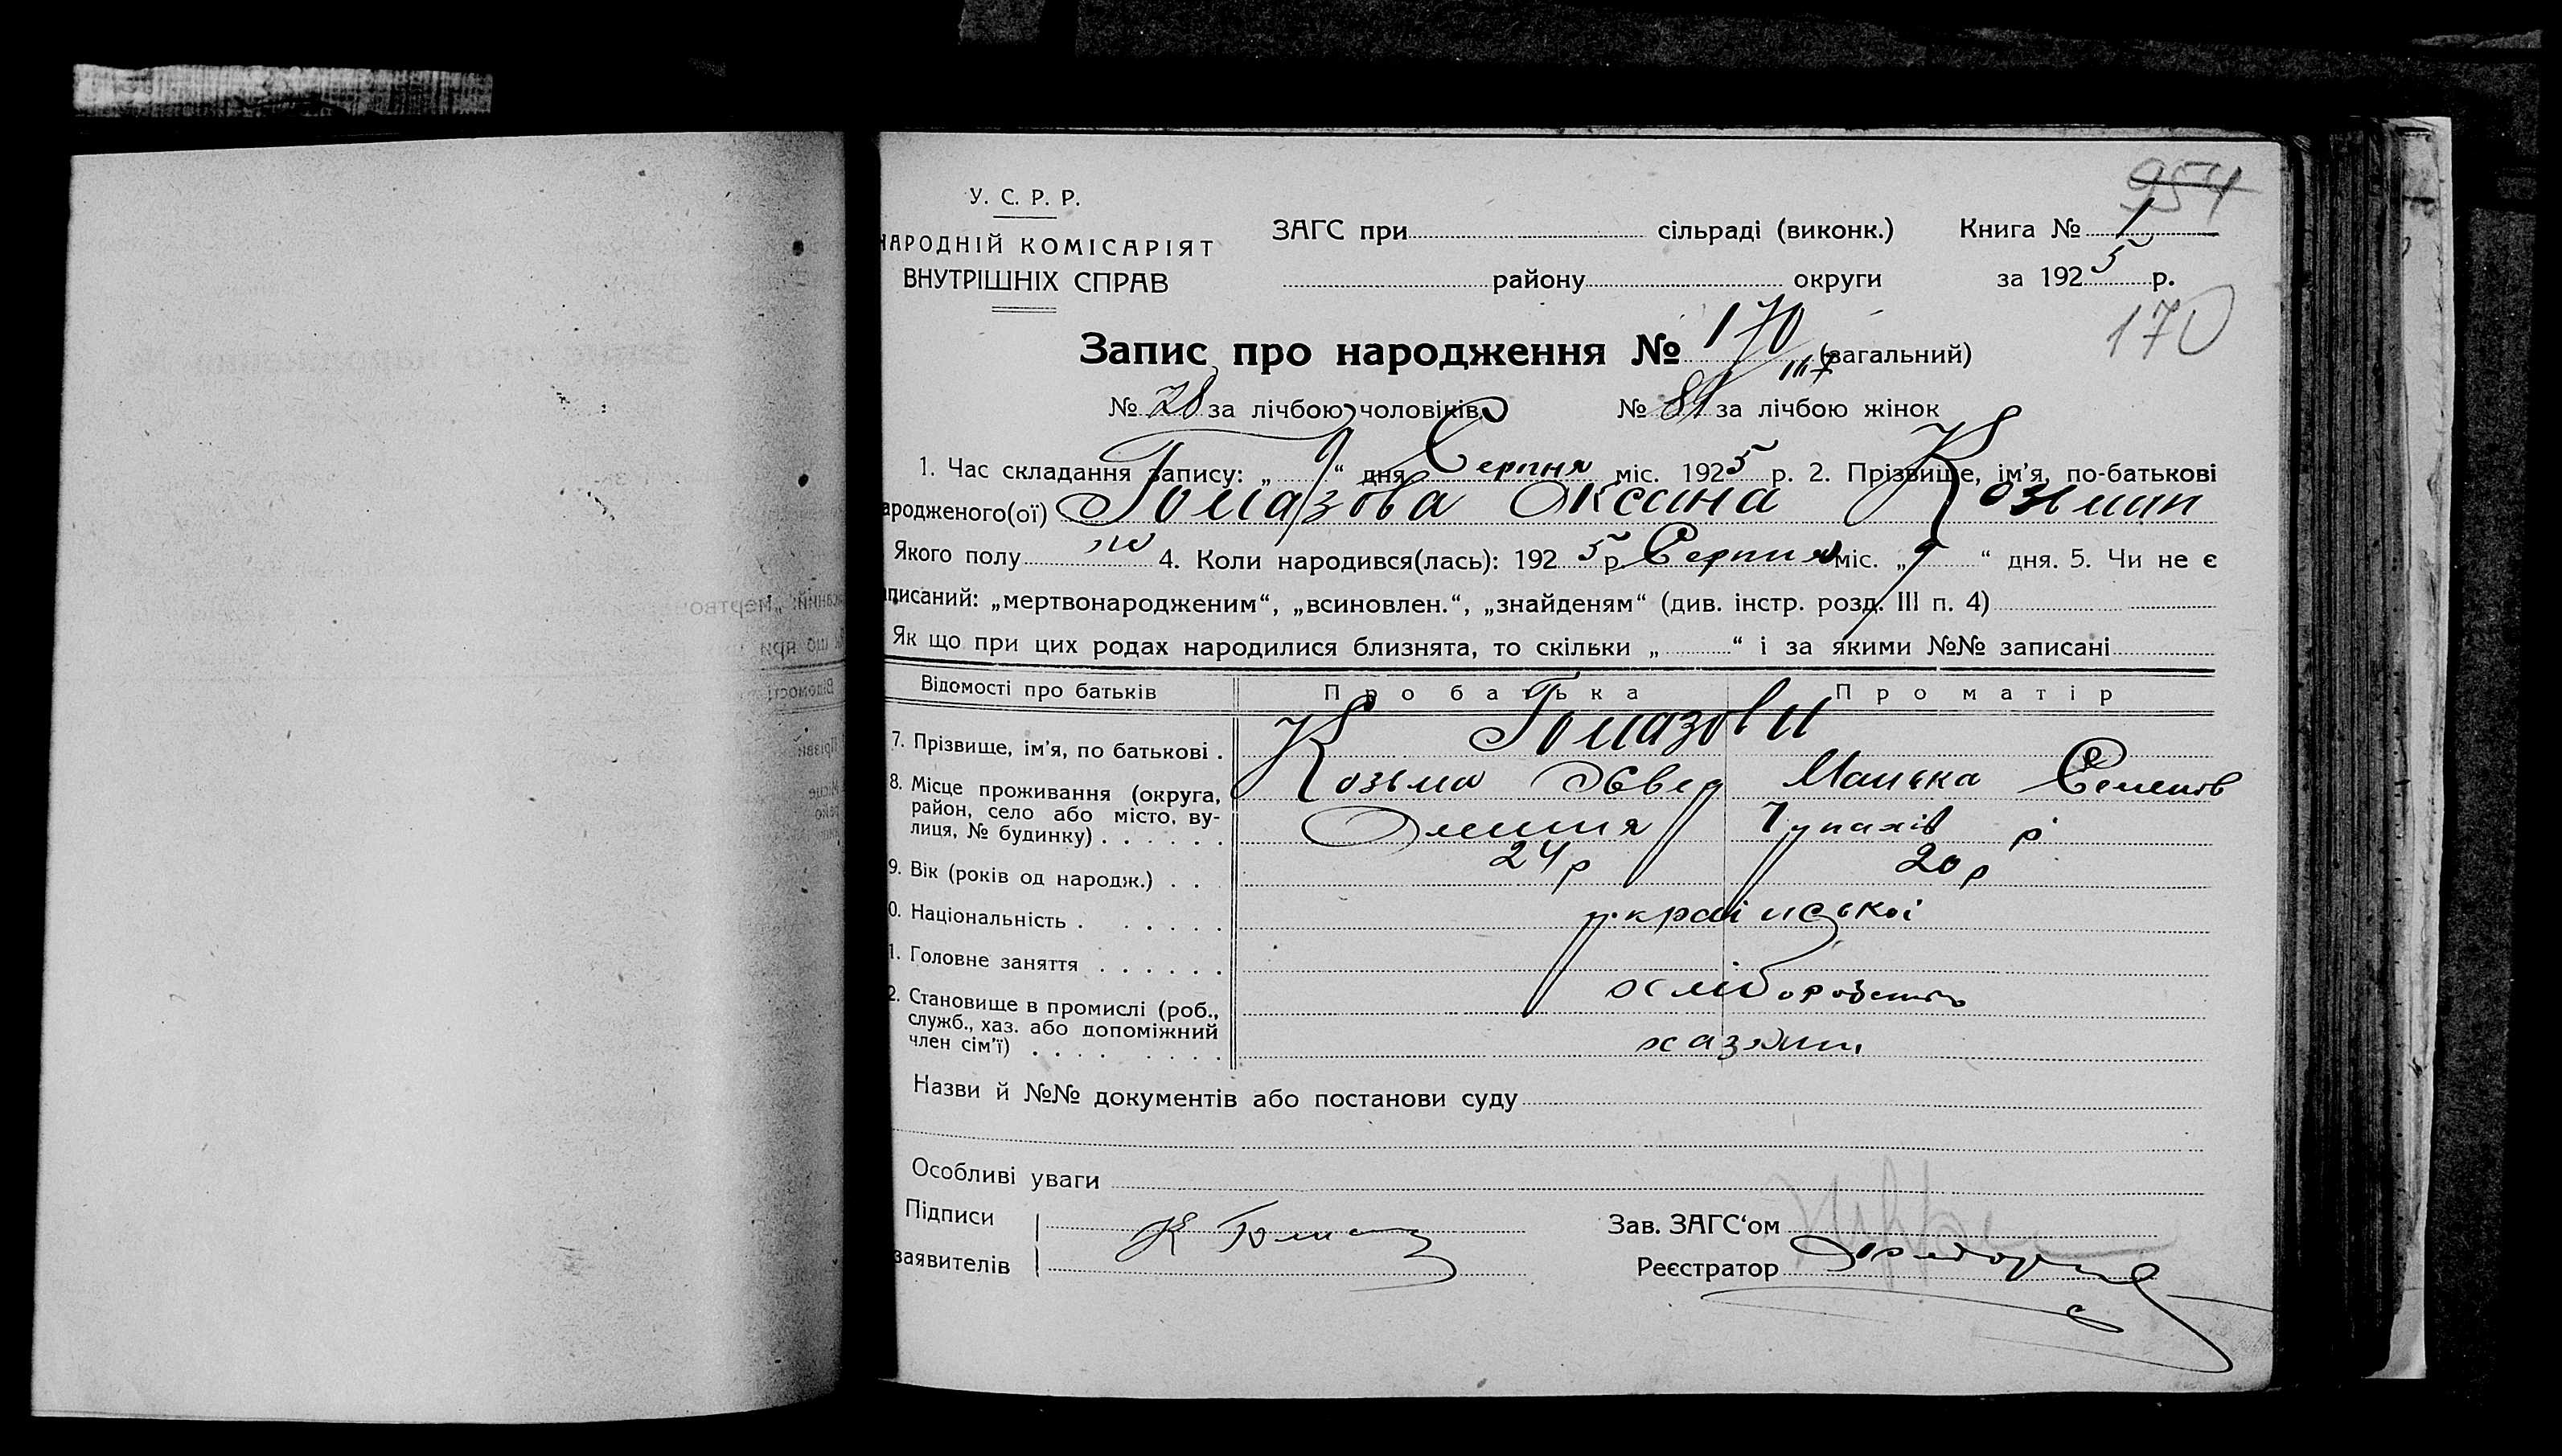 954
У. С. Р. Р.
НАРОДНІЙ КОМІСАРІЯТ
ВНУТРІШНІХ СПРАВ
ЗАГС при сільраді (виконк.) Книга № 1
району округи за 1925 р.
170
Запис про народження № 170 (загальний)
№ за лічбою чоловіків № за лічбою жінок
1. Час складання запису: „ 9 “ дня Серпня міс. 1925 р. 2. Прізвище, ім’я, по-батькові
ародженого(ої) Гомазова Оксана Козьмин
Якого полу ж 4. Коли народився(лась): 1925 р. Серпня міс. „ 9 “ дня. 5. Чи не є
писаний: „мертвонародженим“, „всиновлен.“, „знайденям“ (див. інстр. розд. III п. 4)
Як що при цих родах народилися близнята, то скільки „ “ і за якими №№ записані
Відомості про батьків Про батька Про матір
7. Прізвище, ім’я, по батькові . Гомазови
Козьма Манька Семенов
8. Місце проживання (округа, район, село або місто, вулиця, № будинку) . . . . . .
9. Вік (років од народж.) . . 24 р 20 р
0. Національність . . . . . . української
1. Головне заняття . . . . . .
хлиборобство
2. Становище в промислі (роб., служб., хаз. або допоміжний член сім’ї) . . . . . . . .
Назви й №№ документів або постанови суду
Особливі уваги
Підписи К Гомаз Зав. ЗАГС‘ом
заявителів Реєстратор